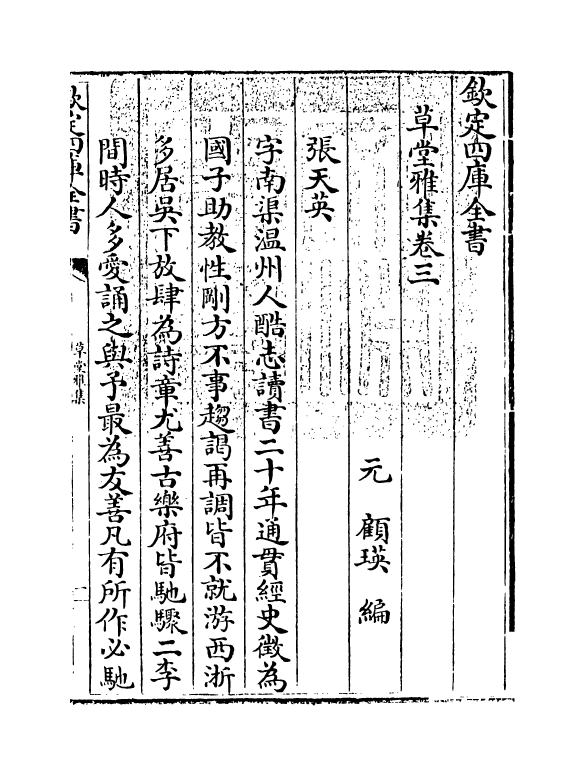 欽定四庫全書
草堂雅集卷三
元 顧瑛 編
張天英
字南渠温州人酷志讀書二十年通貫經史徵為
國子助教性剛方不事趨謁再調皆不就游西浙
多居吳下放肆為詩章尤善古樂府皆馳驟二李
間時人多愛誦之與予最為友善凡有所作必馳
欽定四庫全書
草堂雅集